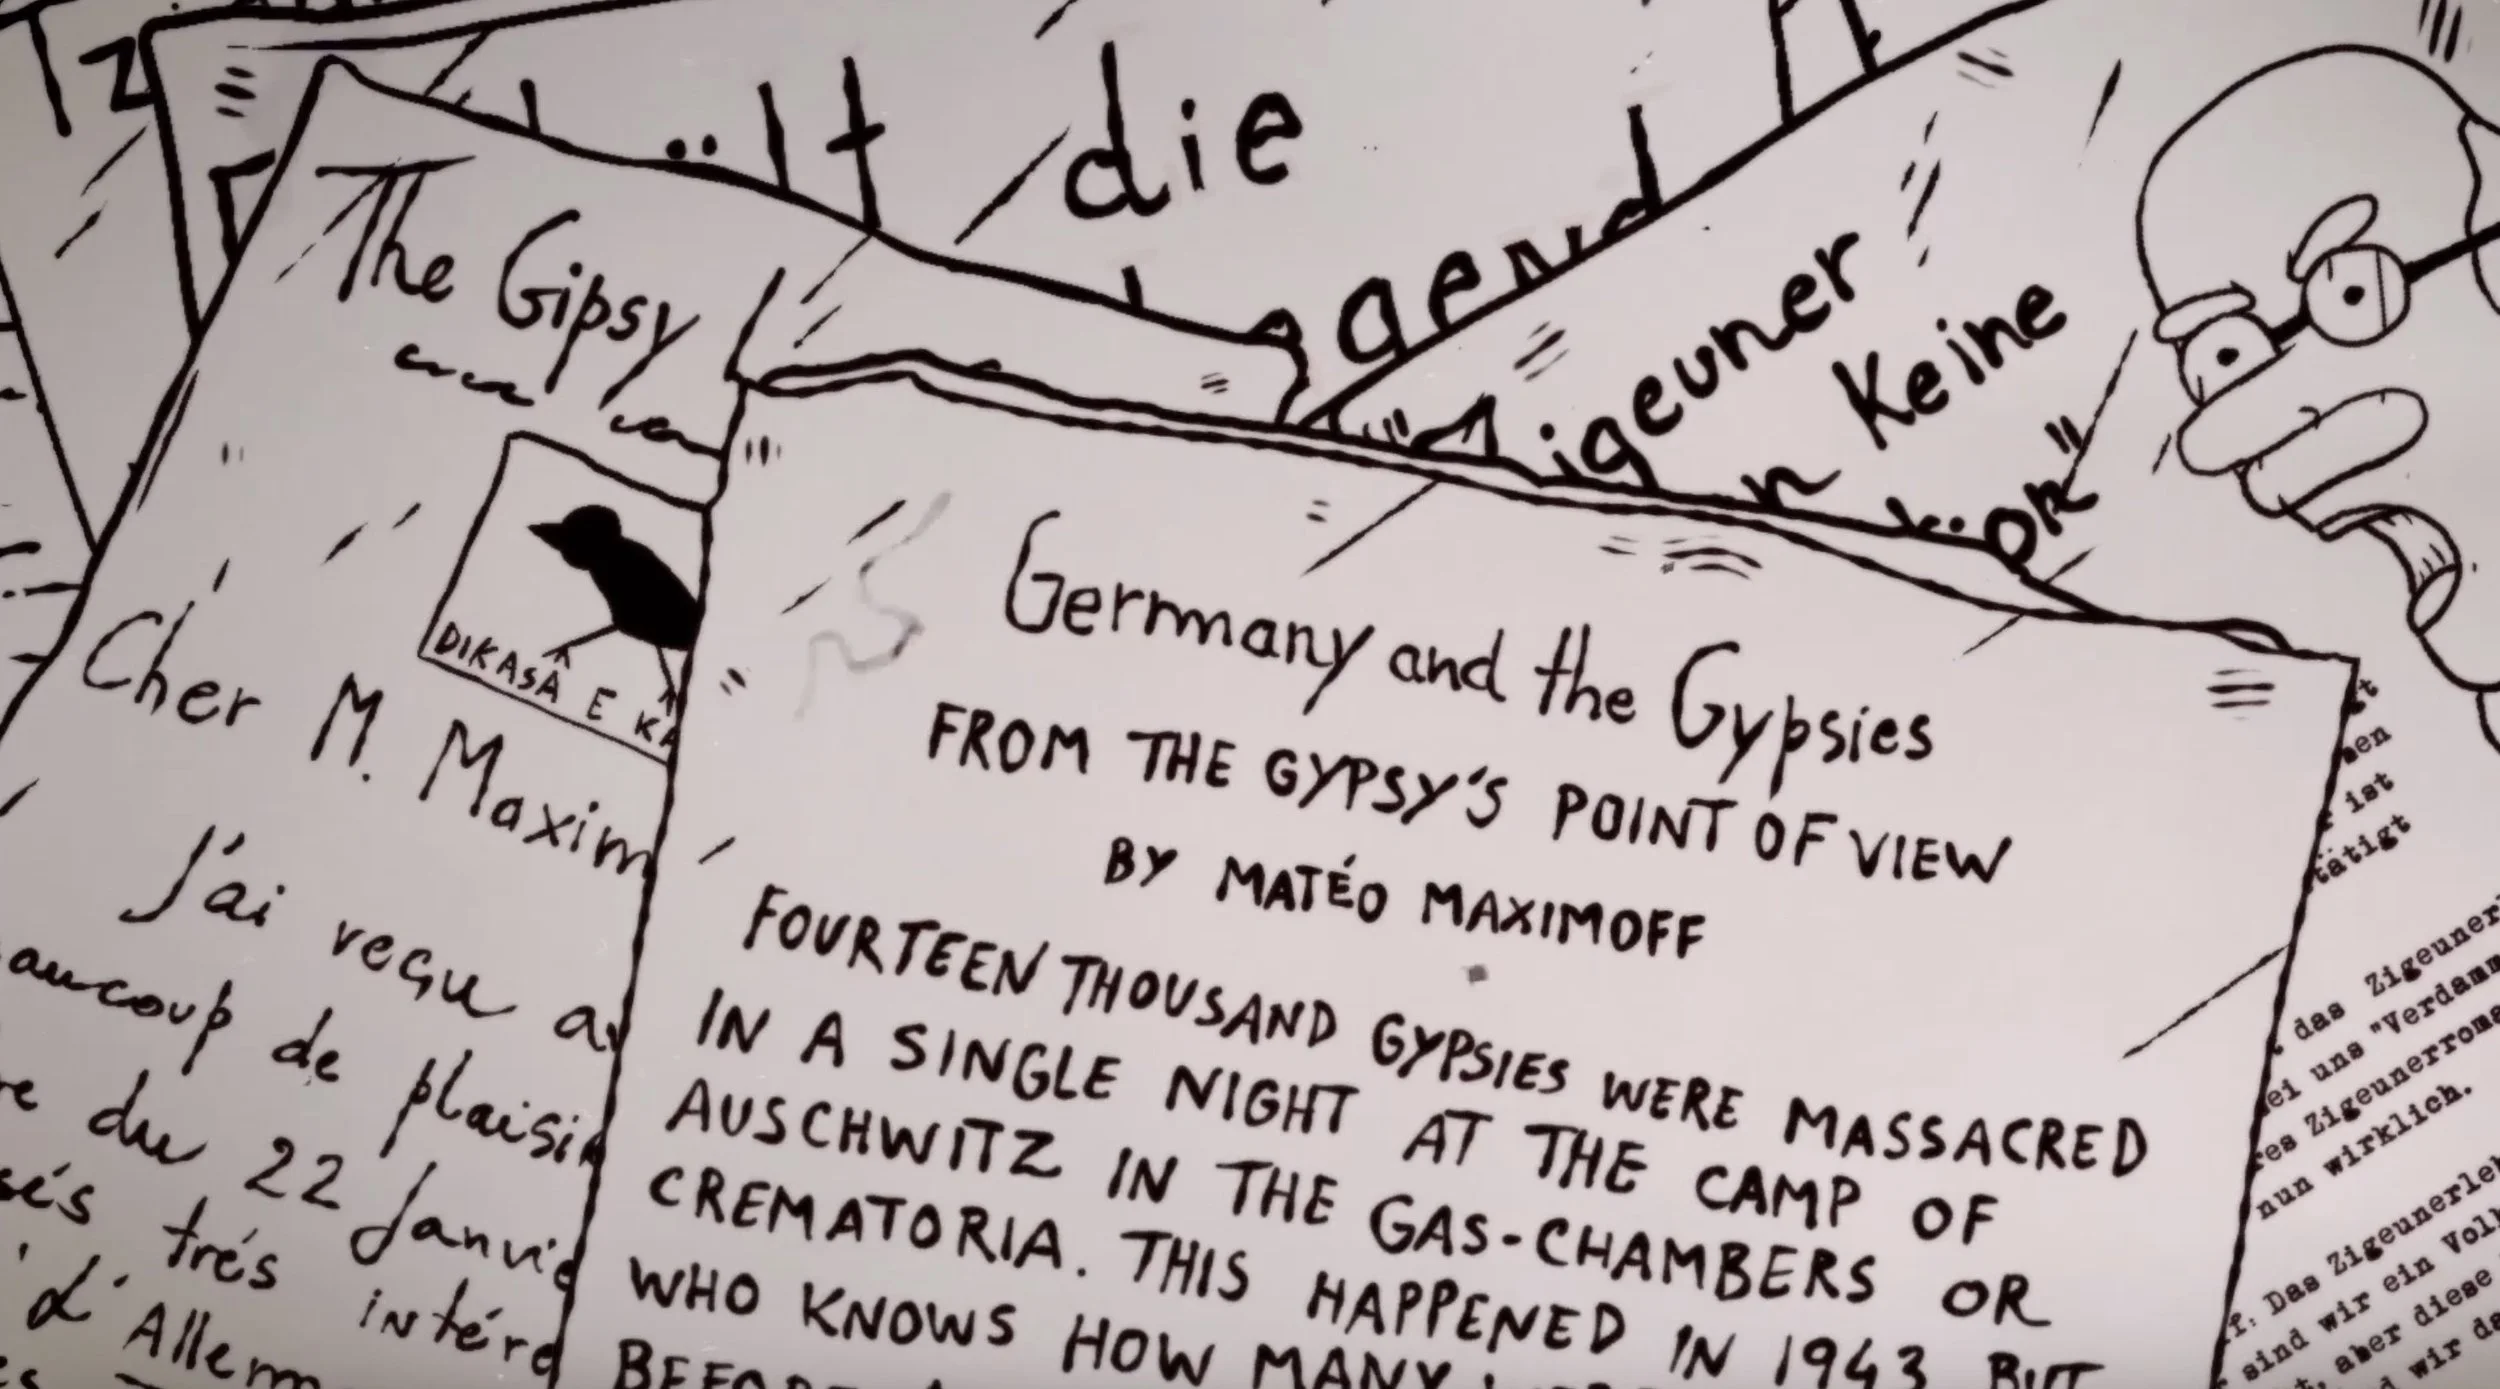 die
The Gipsy
igeuner
Keine
DIKASÂ E KA
Cher M. Maxim
J'ai reçu a
aucoup de plaisi
re du 22 Janvi
sés très intér
d'Allem
Germany and the Gypsies
FROM THE GYPSY'S POINT OF VIEW
BY MATÉO MAXIMOFF
FOURTEEN THOUSAND GYPSIES WERE MASSACRED
IN A SINGLE NIGHT AT THE CAMP OF
AUSCHWITZ IN THE GAS-CHAMBERS OR
CREMATORIA. THIS HAPPENED IN 1943 BUT
WHO KNOWS HOW MANY
ist
tätigt
das Zigeuner
ei uns "Verdamm
es Zigeunerroma
nun wirklich.
f: Das Zigeunerleb
sind wir ein Volk
, aber diese
wir da